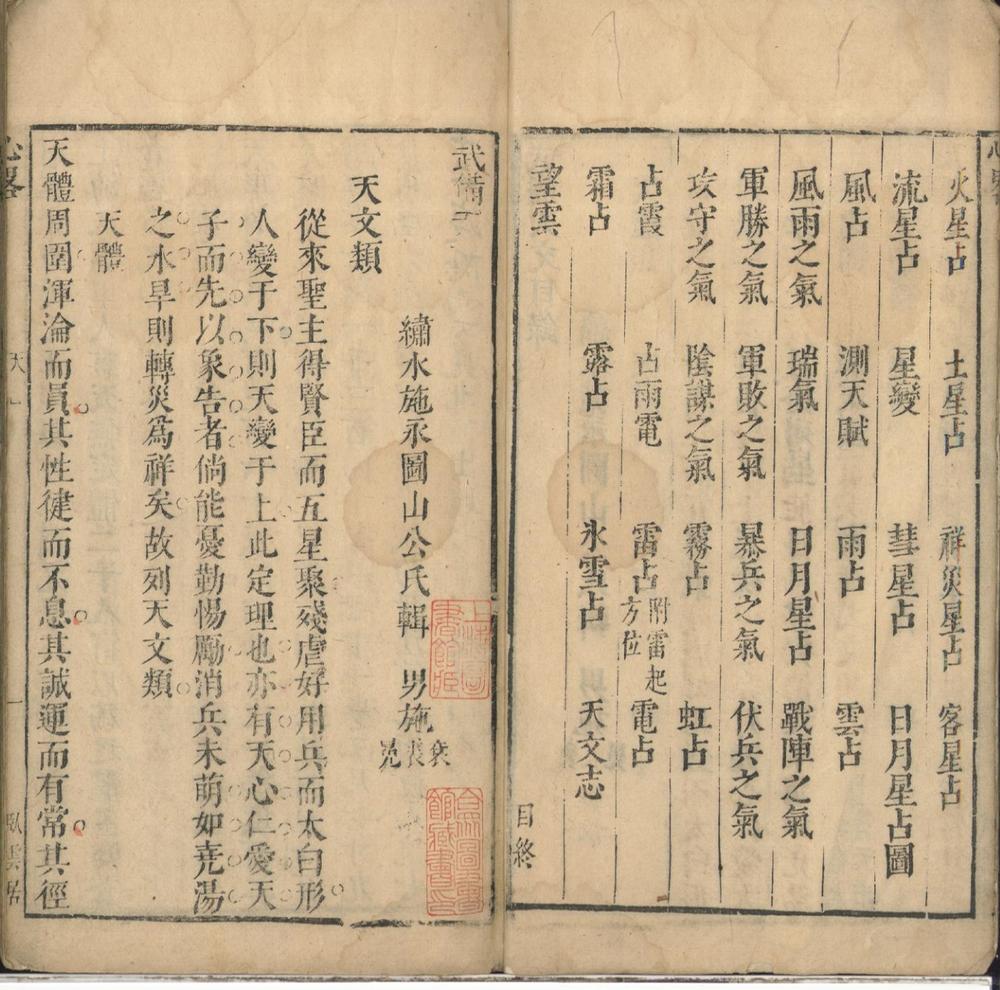 火星占 土星占 祥災星占 客星占
流星占 星變 彗星占 日月星占圖
風占 測天賦 雨占 雲占
風雨之氣 瑞氣 日月星占 戰陣之氣
軍勝之氣 軍敗之氣 暴兵之氣 伏兵之氣
攻守之氣 陰謀之氣 霧占 虹占
占霞 占雨電 雷占附雷起方位 電占
霜占 露占 氷雪占 天文志
望雲 目終
武備
繡水施永圖山公氏輯 男施
天文類
從來聖主得賢臣而五星聚殘虐好用兵而太白形
人變于下則天變于上此定理也亦有天心仁愛天
子而先以象告者倘能憂勤惕厲消兵未萌如堯湯
之水旱則轉災爲祥矣故列天文類
天體
天體周圍渾淪而員其性健而不息其誠運而有常其徑
天 一 臥雲居